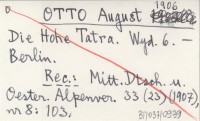 OTTO August 1906
Die Hohe Tatra. Wyd. 6. —
Berlin.
Rec.: Mitt. Dtsch. u.
Oester. Alpenver. 33 (23) (1907),
nr 8: 103,